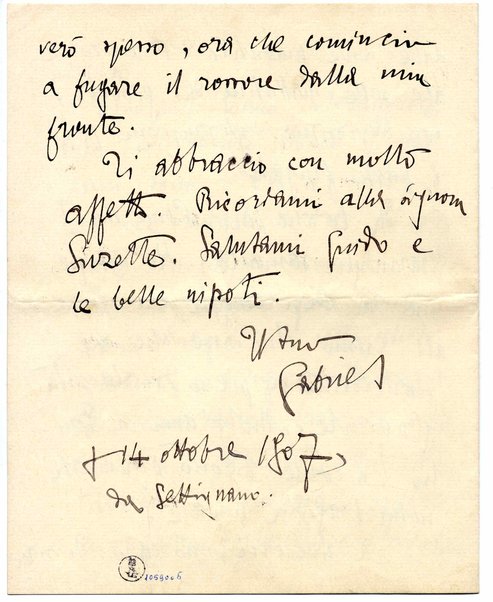 verò spesso, ora che comincio
a fugare il rossore dalla mia
fronte.
Ti abbraccio con molto
affetto. Ricordami alla signora
Suzette. Salutami Guido e
le belle nipoti.
Il tuo
Gabriel
14 ottobre 1907,
da Settignano.
105900b